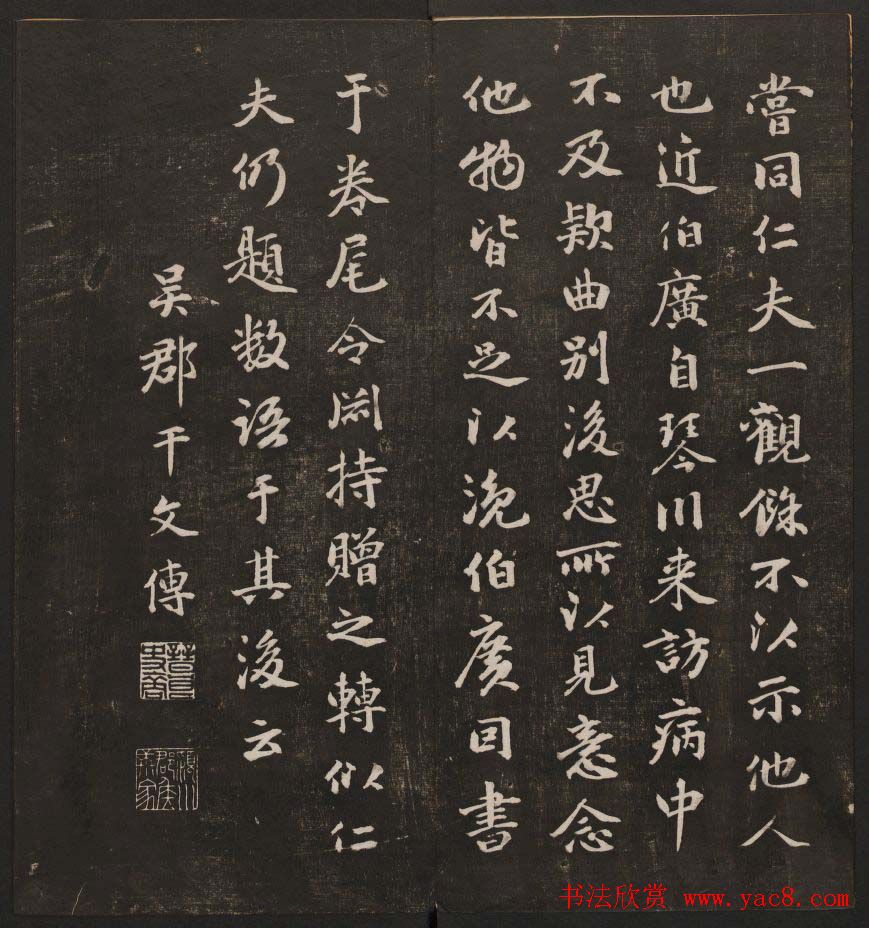 嘗同仁夫一觀餘不以示他人
也近伯廣自琴川来訪病中
不及欵曲别後思所以見意念
他物皆不足以浼伯廣因書
于卷尾令淵持贈之轉似仁
夫仍題数语于其後云
吴郡干文傳
书法欣赏 www.yac8.com